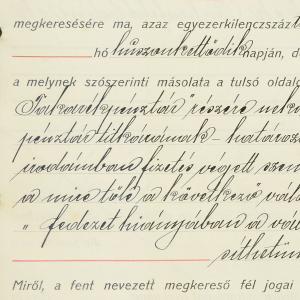 megkeresésére ma, azaz egyezerkilenczszázt
hó huszonkettődik napján, d
a melynek szószerinti másolata a tulsó oldalo
Takarékpénztár" részére nek
pénztár titkárának határoz
irodámban fizetés végett szem
a mire tőle a következő vála
„ fedezet hiányjában a va
síthetün
Miről, a fent nevezett megkereső fél jogai